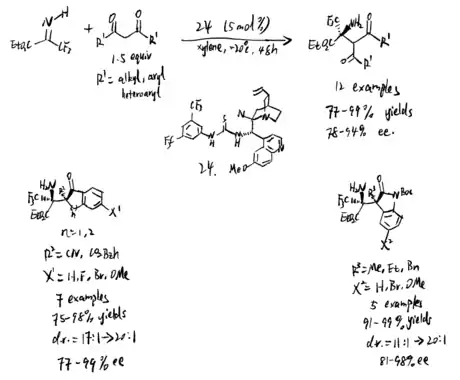 N H
EtO₂C CF₃
+
O O
R¹ R¹
1.5 equiv
R¹ = alkyl, aryl
heteroaryl
24 (5 mol%)
xylene, -20°C, 48h
F₃C NH₂ O
EtO₂C R¹
O R¹
12 examples
77-99% yields
78-94% ee.
CF₃
S
F₃C N H N H
N
N
MeO
24.
H₂N R² O
F₃C
EtO₂C
X¹
n=1,2
R² = CN, CO₂Bzh
X¹ = H, F, Br, OMe
7 examples
75-98% yields
d.r. = 17:1 → 20:1
77-99% ee
H₂N R³ O
F₃C NBoc
EtO₂C
X²
R³ = Me, Et, Bn
X² = H, Br, OMe
5 examples
91-99% yields
d.r. = 11:1 → 20:1
81-98% ee